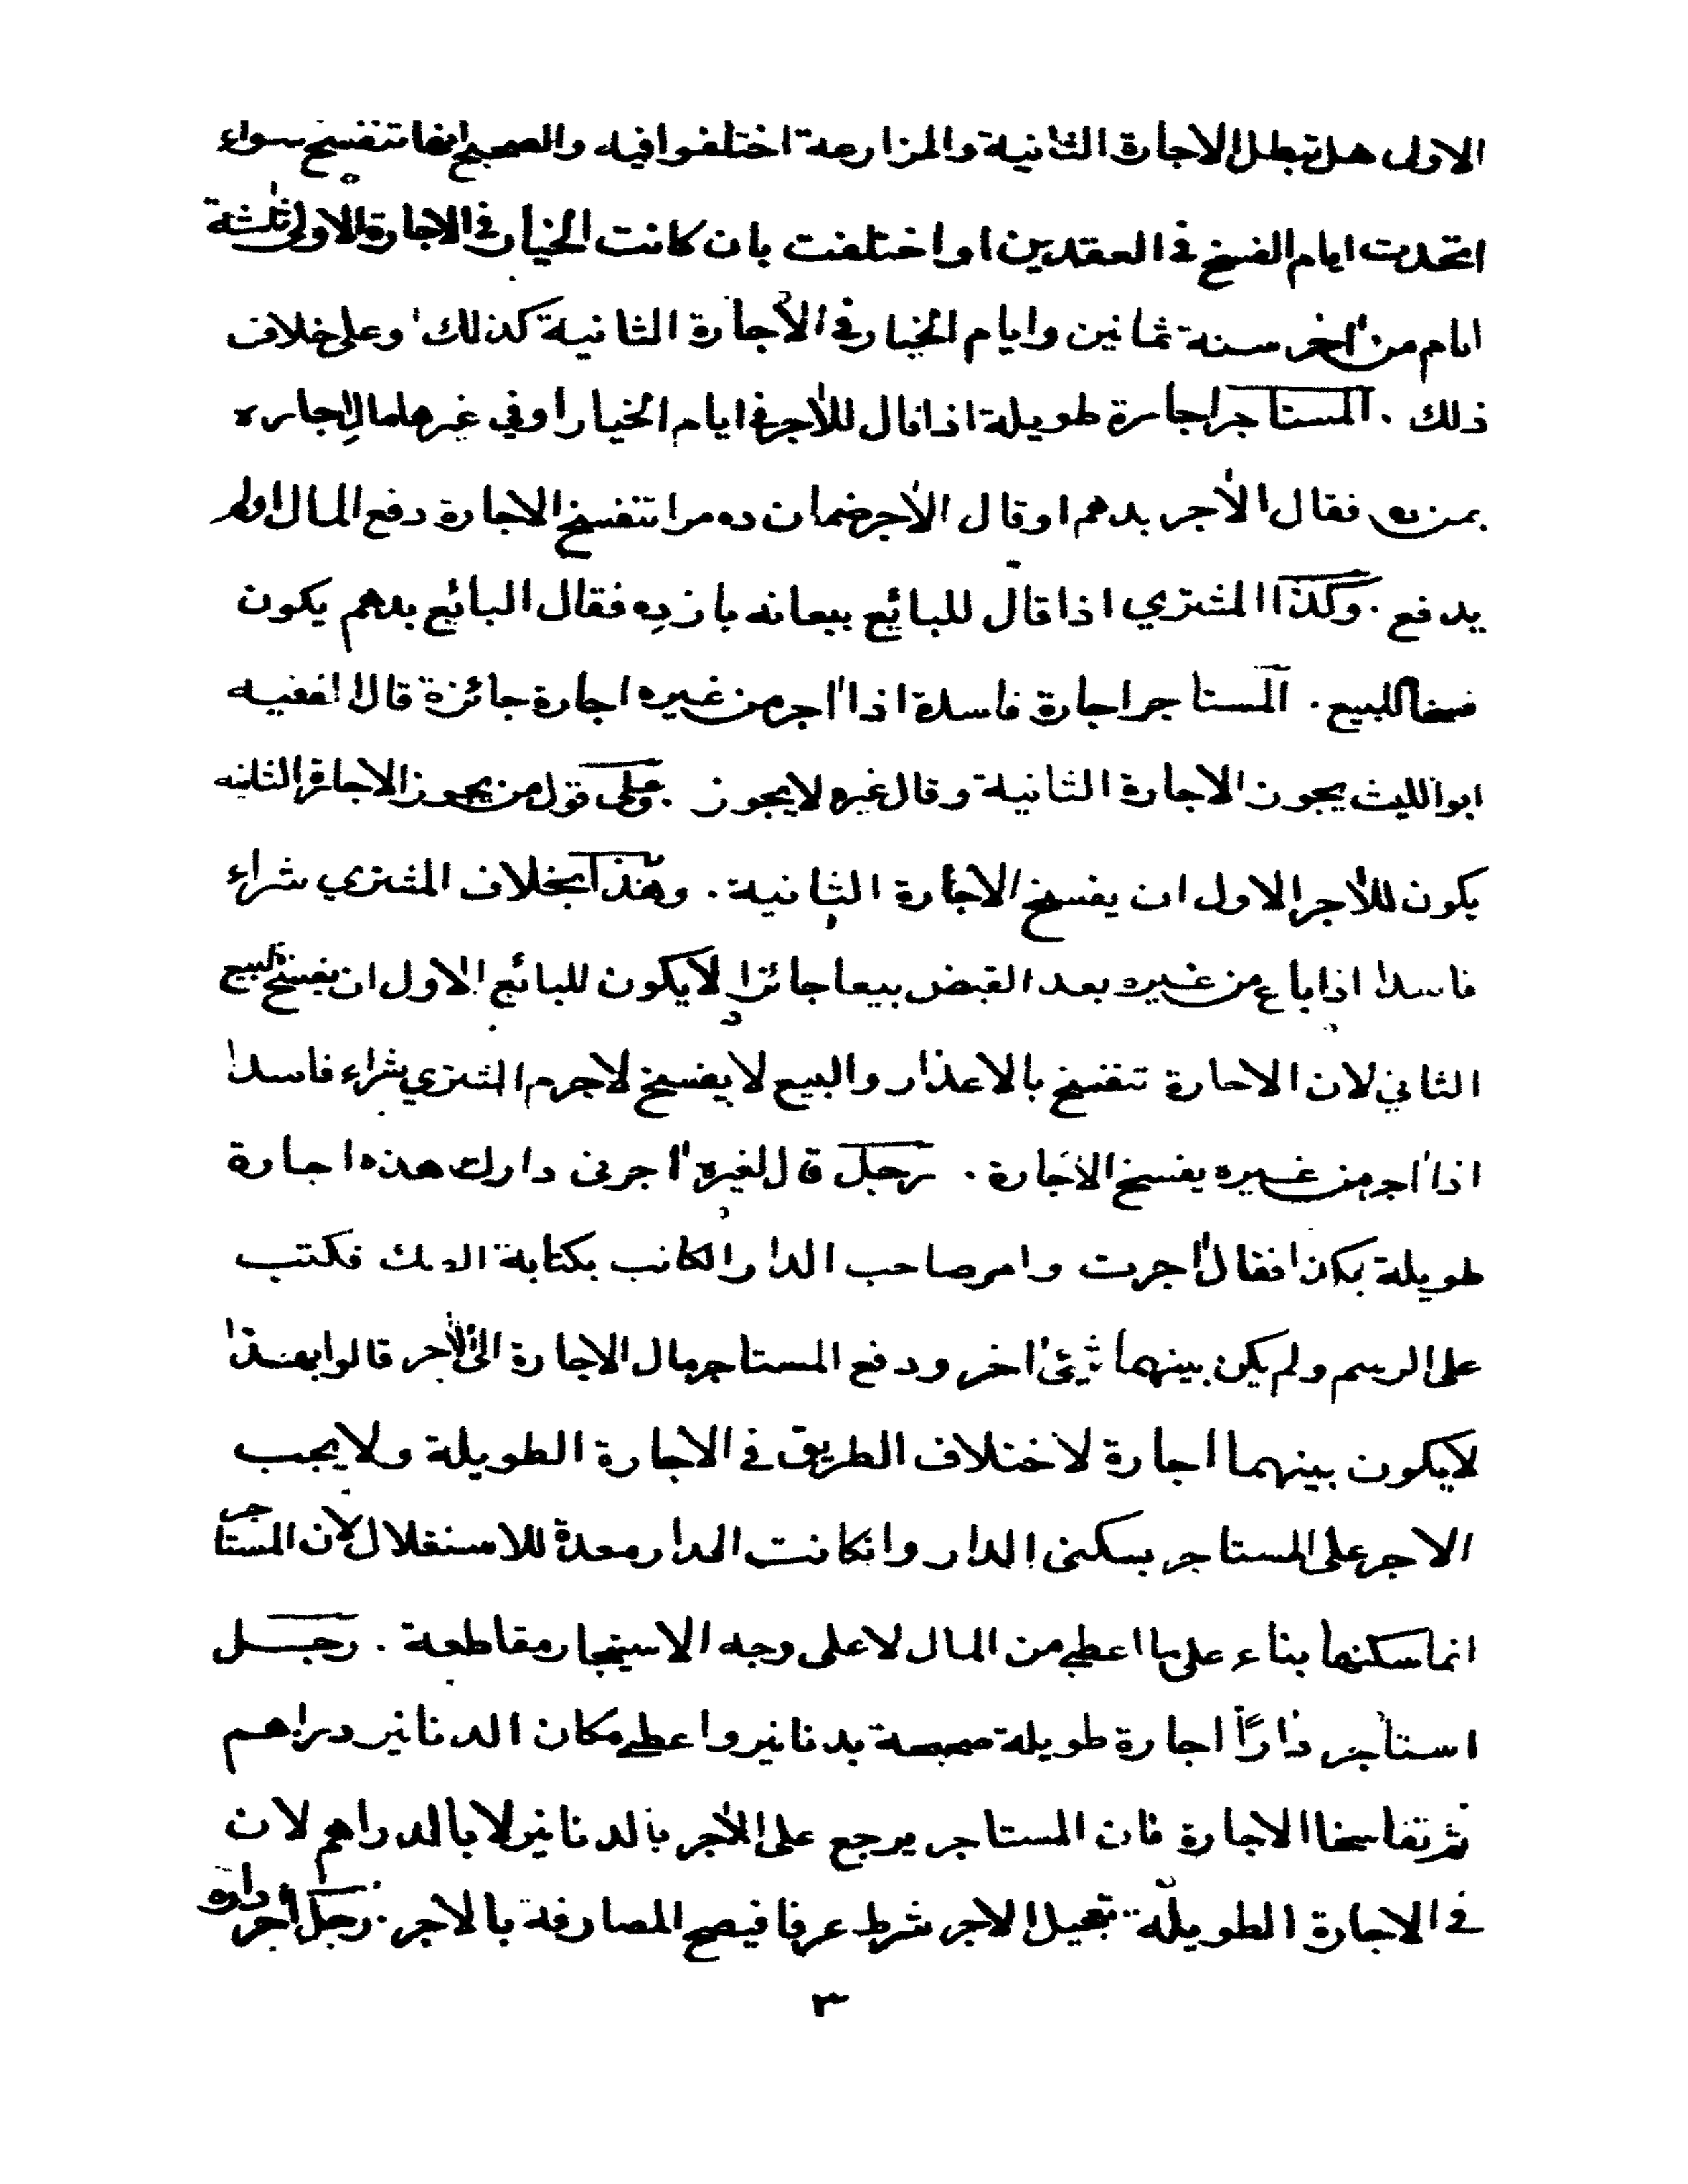 الاولى هل تبطل الاجارة الثانية والمزارعة اختلفوا فيه والصحيح انها تنفسخ سواء
اتحدت ايام الفسخ في العقدين او اختلفت بان كانت الخيار في الاجارة الاولى ثلثة
ايام من اخر سنة ثمانين وايام الخيار في الاجارة الثانية كذلك وعلى خلاف
ذلك . المستاجر اجارة طويلة اذا قال للآجر في ايام الخيار او في غيرها مال اجاره
بمن ده فقال الآجر بدهم او قال الآجر ضمان ده مرا تنفسخ الاجارة دفع المال اولم
يدفع . وكذا المشتري اذا قال للبائع بيعانه باز ده فقال البائع بدهم يكون
فسخا للبيع . المستاجر اجارة فاسدة اذا آجر من غيره اجارة جائزة قال الفقيه
ابو الليث يجوز الاجارة الثانية وقال غيره لا يجوز . وعلى قول من يجوز الاجارة الثانيه
يكون للآجر الاول ان يفسخ الاجارة الثانية . وهذا بخلاف المشتري شراء
فاسدا اذا باع من غيره بعد القبض بيعا جائزا لا يكون للبائع الاول ان يفسخ البيع
الثاني لان الاجارة تنفسخ بالاعذار والبيع لا يفسخ لا جرم المشتري شراء فاسدا
اذا آجر من غيره يفسخ الاجارة . رجل قال لغيره آجرنى دارك هذه اجارة
طويلة بكذا فقال آجرت وامر صاحب الدار الكاتب بكتابة الصك فكتب
على الرسم ولم يكن بينهما شيئ اخر ودفع المستاجر مال الاجارة الى الآجر قالوا بهذا
لا يكون بينهما اجارة لاختلاف الطريق في الاجارة الطويلة ولا يجب
الاجر على المستاجر بسكنى الدار وانكانت الدار معدة للاستغلال لان المستاجر
انما سكنها بناء على ما اعطى من المال لا على وجه الاستيجار مقاطعة . رجل
استاجر دارًا اجارة طويلة صحيحة بدنانير واعطى مكان الدنانير دراهم
ثم تفاسخا الاجارة فان المستاجر يرجع على الآجر بالدنانير لا بالدراهم لان
في الاجارة الطويلة تعجيل الاجر شرط عرفا فيصح المصارفة بالاجر . رجل آجر داره
٣